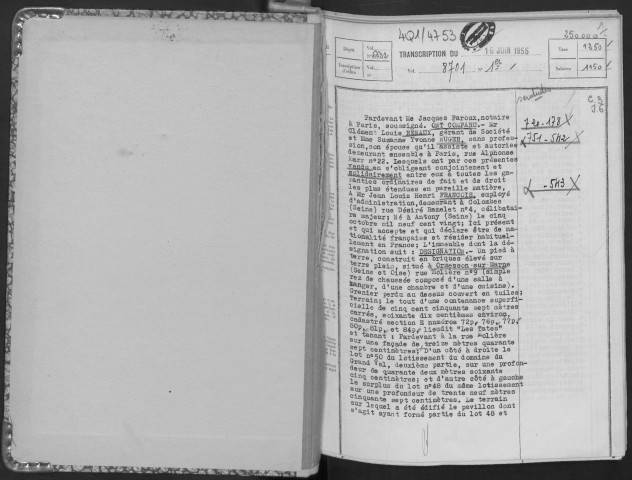 4Q1/4753
250000
Dépôt
Vol.
TRANSCRIPTION DU 16 JUIN 1955
Taxe 1250
Transcription d'office
Vol.
Vol. 8701 - 1er
Salaires 1150
Pardevant Me Jacques Paroux, notaire
à Paris, soussigné. ONT COMPARU.- Mr
Clément Louis RENAUX, gérant de Société
et Mme Suzanne Yvonne HUGER, sans profes-
sion, son épouse qu'il assiste et autorise
demeurant ensemble à Paris, rue Alphonse
Karr n°22. Lesquels ont par ces présentes
vendu en s'obligeant conjointement et
solidairement entre eux à toutes les ga-
ranties ordinaires de fait et de droit
les plus étendues en pareille matière,
A Mr Jean Louis Henri FRANCOIS, employé
d'administration, demeurant à Colombes
(Seine) rue Désiré Hazelet n°4, célibatai-
re majeur; Né à Antony (Seine) le cinq
octobre mil neuf cent vingt; Ici présent
et qui accepte et qui déclare être de na-
tionalité française et résider habituel-
lement en France; L'immeuble dont la dé-
signation suit : DESIGNATION.- Un pied à
terre, construit en briques élevé sur
terre plein, situé à Ormesson sur Marne
(Seine et Oise) rue Molière n°9 (simple
rez de chaussée composé d'une salle à
manger, d'une chambre et d'une cuisine).
Grenier perdu au dessus couvert en tuiles;
Terrain; le tout d'une contenance superfi-
cielle de cinq cent cinquante sept mètres
carrés, soixante dix centièmes environ,
cadastré section E numéros 72p, 76p, 77p
80p, 81p, et 84p, lieudit "Les Fates"
et tenant : Pardevant à la rue Molière
sur une façade de treize mètres quarante
sept centimètres; D'un côté à droite le
lot n°50 du lotissement du domaine du
Grand Val, deuxième partie, sur une profon-
deur de quarante deux mètres soixante
cinq centimètres; et d'autre côté à gauche
le surplus du lot n°48 du même lotissement
sur une profondeur de trente neuf mètres
cinquante sept centimètres. Le terrain
sur lequel a été édifié le pavillon dont
s'agit ayant formé partie du lot 48 et
720-178 X
751-542 X
- 543 X